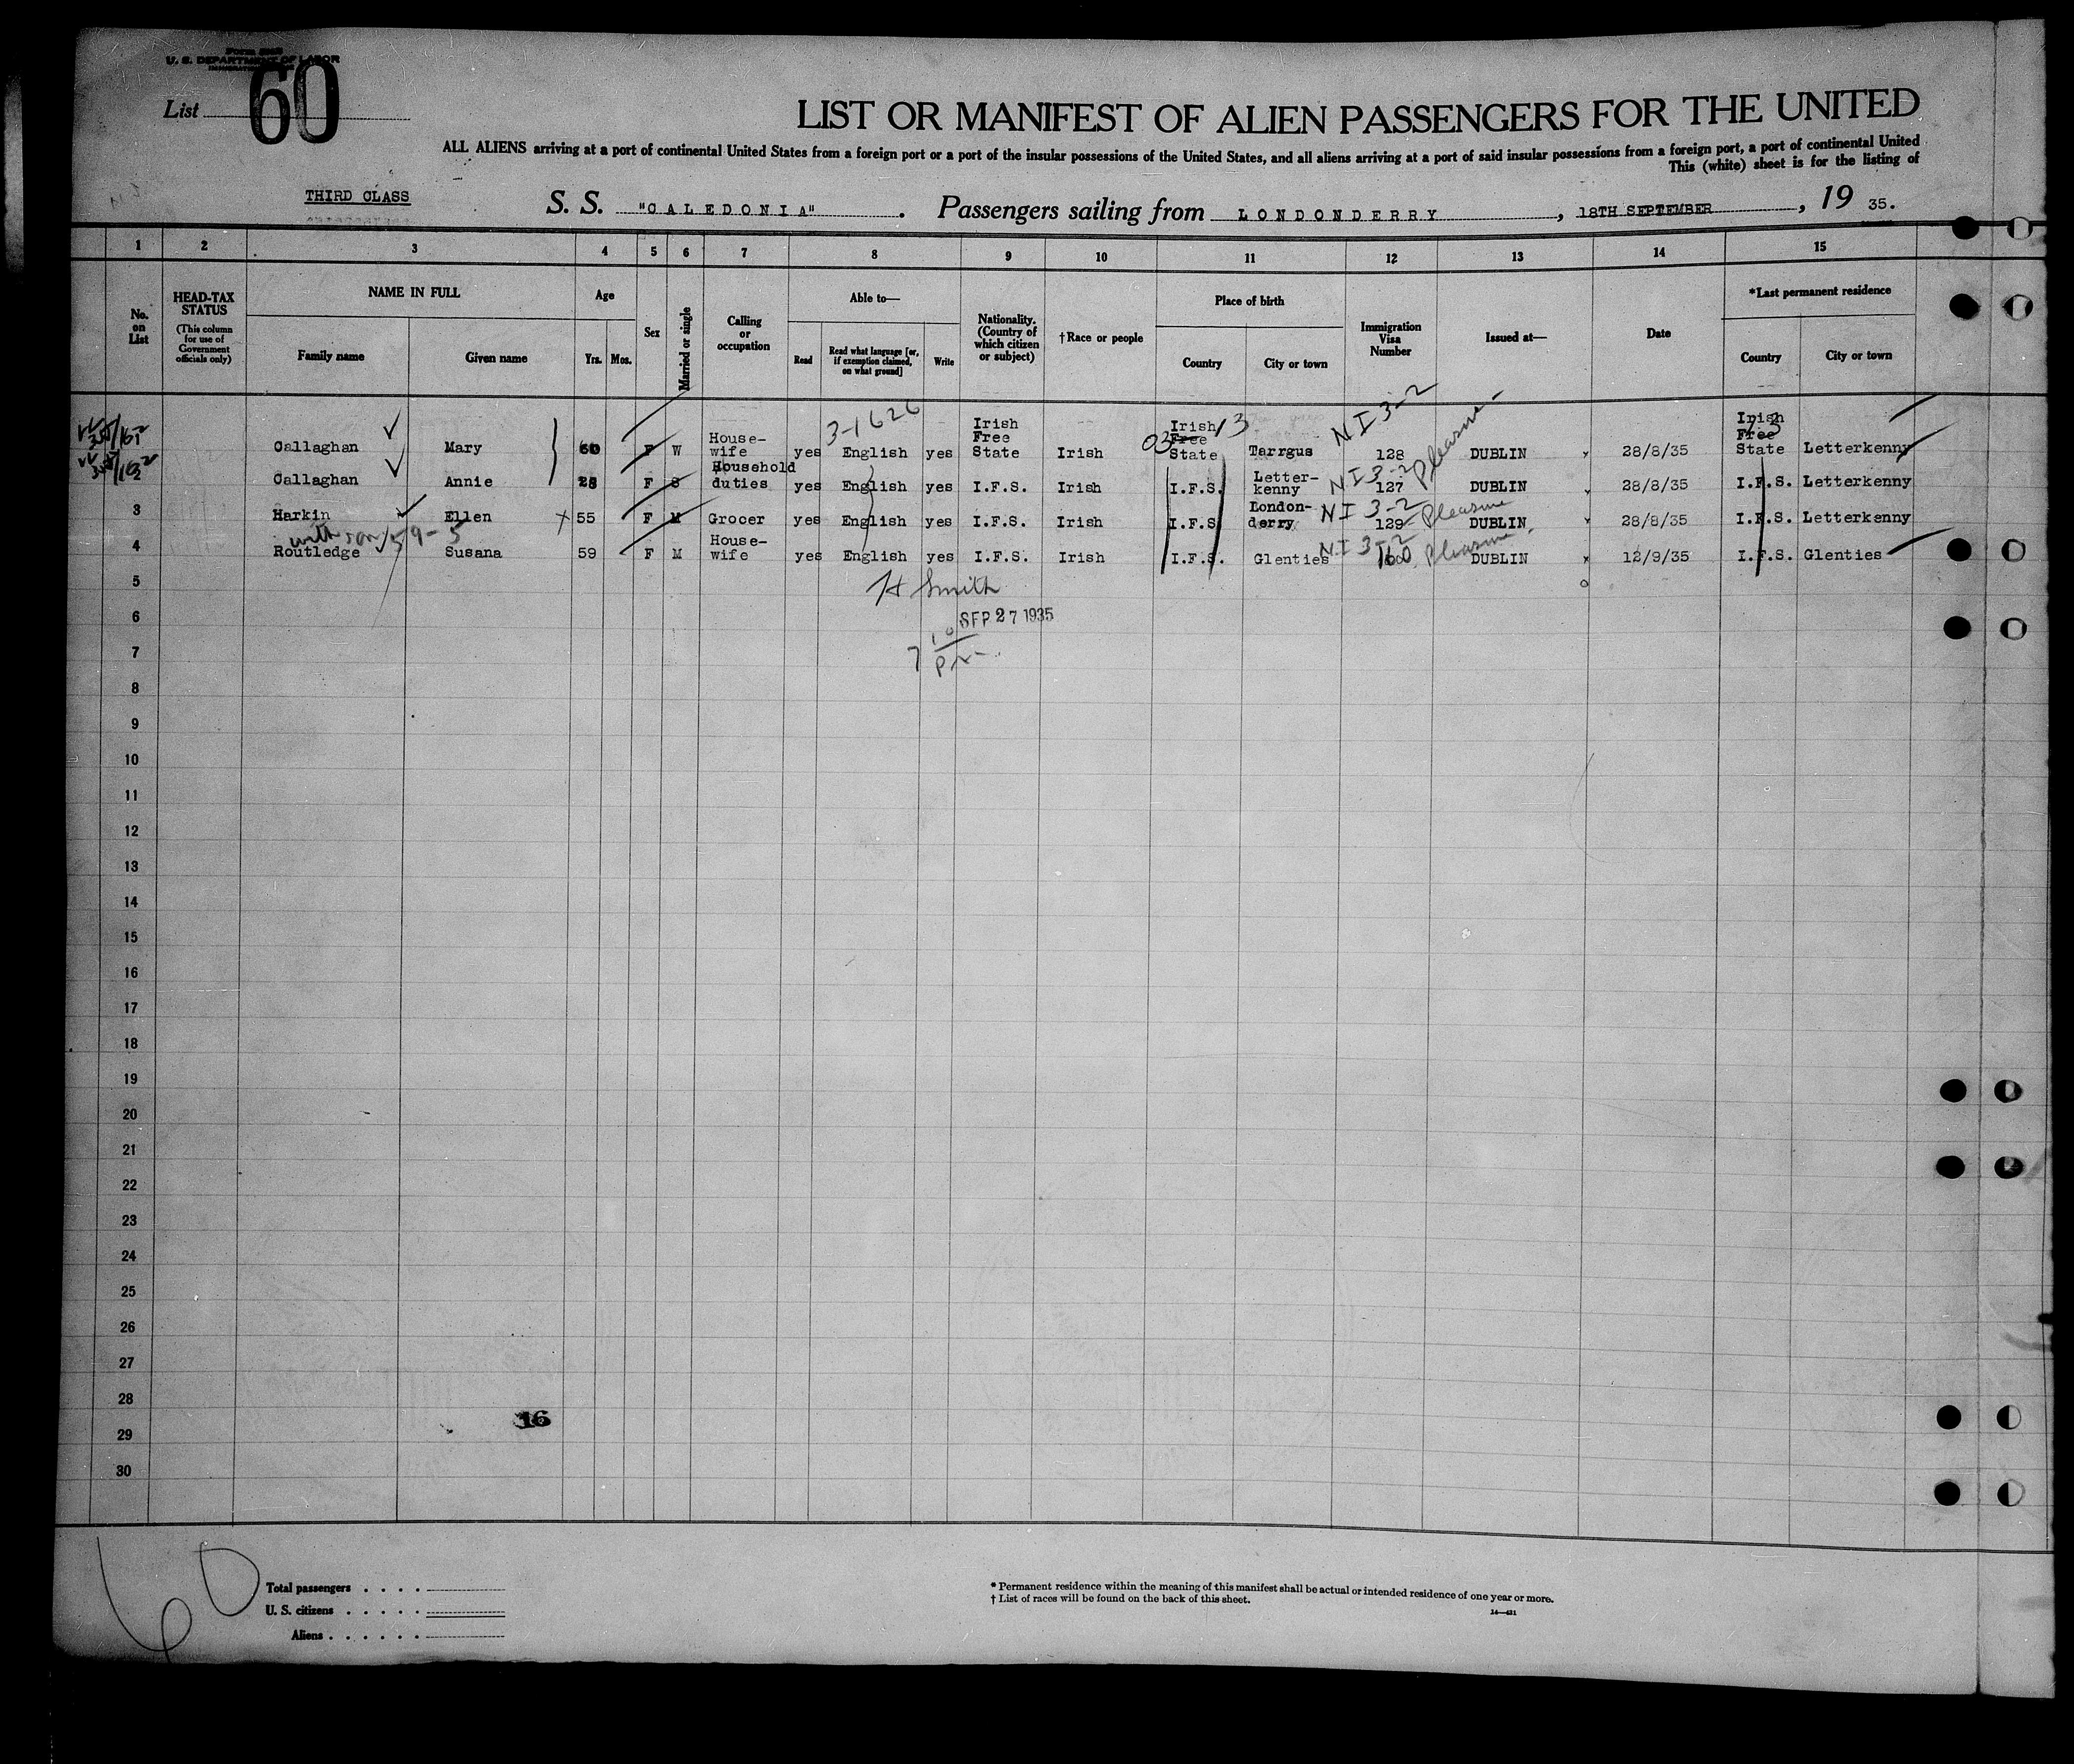 U. S. DEPARTMENT OF LABOR
List 60
LIST OR MANIFEST OF ALIEN PASSENGERS FOR THE UNITED
ALL ALIENS arriving at a port of continental United States from a foreign port or a port of the insular possessions of the United States, and all aliens arriving at a port of said insular possessions from a foreign port, a port of continental United
This (white) sheet is for the listing of
THIRD CLASS
S. S. "CALEDONIA". Passengers sailing from LONDONDERRY, 18TH SEPTEMBER, 19 35.
1 2 3 4 5 6 7 8 9 10 11 12 13 14 15
No. on List
HEAD-TAX STATUS (This column for use of Government officials only)
NAME IN FULL
Family name Given name
Age
Yrs. Mos.
Sex
Married or single
Calling or occupation
Able to—
Read Read what language [or, if exemption claimed, on what ground] Write
Nationality. (Country of which citizen or subject)
†Race or people
Place of birth
Country City or town
Immigration Visa Number
Issued at—
Date
*Last permanent residence
Country City or town
3-1626
03 13
Callaghan Mary 60 F W House-wife yes English yes Irish Free State Irish Irish Free State Tarrgus NI 3-2 128 Pleasure DUBLIN 28/8/35 Irish Free State Letterkenny
Callaghan Annie 28 F S Household duties yes English yes I.F.S. Irish I.F.S. Letter-kenny NI 3-2 127 DUBLIN 28/8/35 I.F.S. Letterkenny
3 Harkin Ellen 55 F M Grocer yes English yes I.F.S. Irish I.F.S. London-derry NI 3-2 129 Pleasure DUBLIN 28/8/35 I.F.S. Letterkenny
with son 59-5
4 Routledge Susana 59 F M House-wife yes English yes I.F.S. Irish I.F.S. Glenties NI 3-2 160 Pleasure DUBLIN 12/9/35 I.F.S. Glenties
5
H Smith
6
SEP 27 1935
7
8
9
10
11
12
13
14
15
16
17
18
19
20
21
22
23
24
25
26
27
28
16
29
30
60
Total passengers . . . .
U. S. citizens . . . . .
Aliens . . . . . .
* Permanent residence within the meaning of this manifest shall be actual or intended residence of one year or more.
† List of races will be found on the back of this sheet.